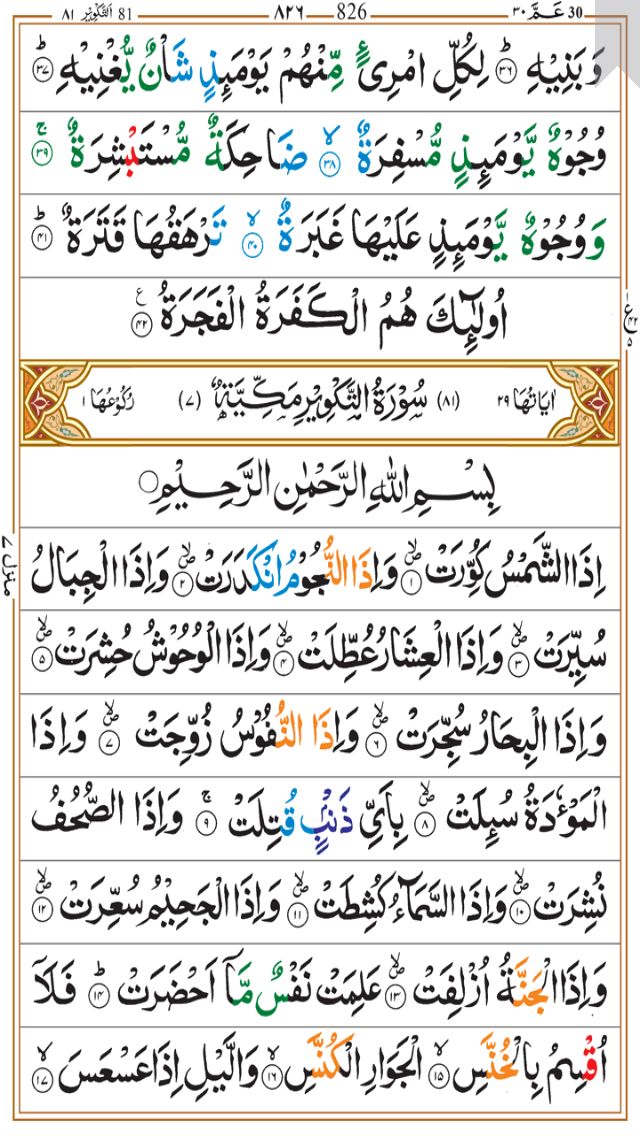 ٣٠ عَمَّ 30 ٨٢٦ 826 81 التكوير ٨١
وَبَنِيْهِ ﴿٣٦﴾ؕ لِكُلِّ امْرِئٍ مِّنْهُمْ يَوْمَئِذٍ شَاْنٌ يُّغْنِيْهِ ﴿٣٧﴾ؕ
وُجُوْهٌ يَّوْمَئِذٍ مُّسْفِرَةٌ ﴿٣٨﴾ۙ ضَاحِكَةٌ مُّسْتَبْشِرَةٌ ﴿٣٩﴾ۚ
وَوُجُوْهٌ يَّوْمَئِذٍ عَلَيْهَا غَبَرَةٌ ﴿٤٠﴾ۙ تَرْهَقُهَا قَتَرَةٌ ﴿٤١﴾ؕ
اُولٰٓئِكَ هُمُ الْكَفَرَةُ الْفَجَرَةُ ﴿٤٢﴾ ع
ع ٤٢ ٥
اٰيَاتُهَا ٢٩ (٨١) سُوْرَةُ التَّكْوِيْرِ مَكِّيَّةٌ (٧) رُكُوْعُهَا ١
بِسْمِ اللهِ الرَّحْمٰنِ الرَّحِيْمِ
منزل ٧
اِذَا الشَّمْسُ كُوِّرَتْ ﴿١﴾ۙ وَاِذَا النُّجُوْمُ انْكَدَرَتْ ﴿٢﴾ۙ وَاِذَا الْجِبَالُ
سُيِّرَتْ ﴿٣﴾ۙ وَاِذَا الْعِشَارُ عُطِّلَتْ ﴿٤﴾ۙ وَاِذَا الْوُحُوْشُ حُشِرَتْ ﴿٥﴾ۙ
وَاِذَا الْبِحَارُ سُجِّرَتْ ﴿٦﴾ۙ وَاِذَا النُّفُوْسُ زُوِّجَتْ ﴿٧﴾ۙ وَاِذَا
الْمَوْءٗدَةُ سُئِلَتْ ﴿٨﴾ۙ بِاَيِّ ذَنْۢبٍ قُتِلَتْ ﴿٩﴾ۚ وَاِذَا الصُّحُفُ
نُشِرَتْ ﴿١٠﴾ۙ وَاِذَا السَّمَآءُ كُشِطَتْ ﴿١١﴾ۙ وَاِذَا الْجَحِيْمُ سُعِّرَتْ ﴿١٢﴾ۙ
وَاِذَا الْجَنَّةُ اُزْلِفَتْ ﴿١٣﴾ۙ عَلِمَتْ نَفْسٌ مَّاۤ اَحْضَرَتْ ﴿١٤﴾ؕ فَلَاۤ
اُقْسِمُ بِالْخُنَّسِ ﴿١٥﴾ۙ الْجَوَارِ الْكُنَّسِ ﴿١٦﴾ۙ وَالَّيْلِ اِذَا عَسْعَسَ ﴿١٧﴾ۙ